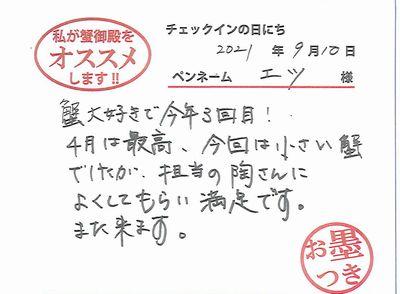 私が蟹御殿を
オススメ
します!!
チェックインの日にち
2021 年 9月10日
ペンネーム エツ 様
蟹大好きで今年3回目!
4月は最高、今回は小さい蟹
でしたが、担当の陶さんに
よくしてもらい満足です。
また来ます。
お墨
つき